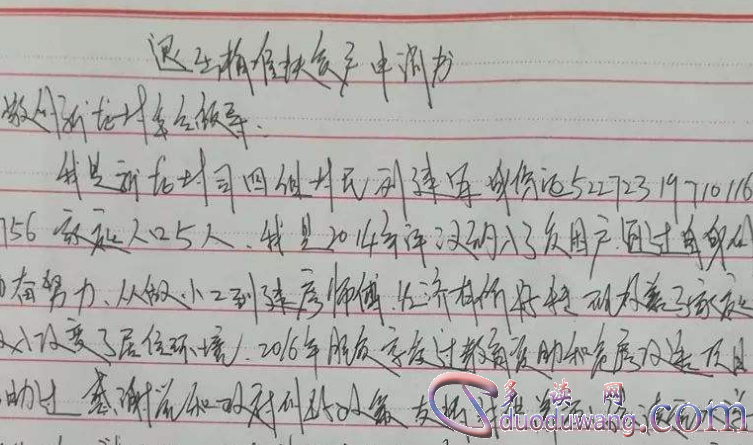 退出精准扶贫户申请书
敬的新龙村委会领导:
我是新龙村司四组村民刘建军 身份证52272319710116
756 家庭人口5人、我是2014年评议纳入了贫困户 通过自身的
力奋努力、从做小工到建房师傅、经济有所好转 改善了家庭
入改变了居住环境、2016年脱贫享受过教育资助和危房改造项目
助过 感谢党和政府的好政策
多读网
duoduwang.com